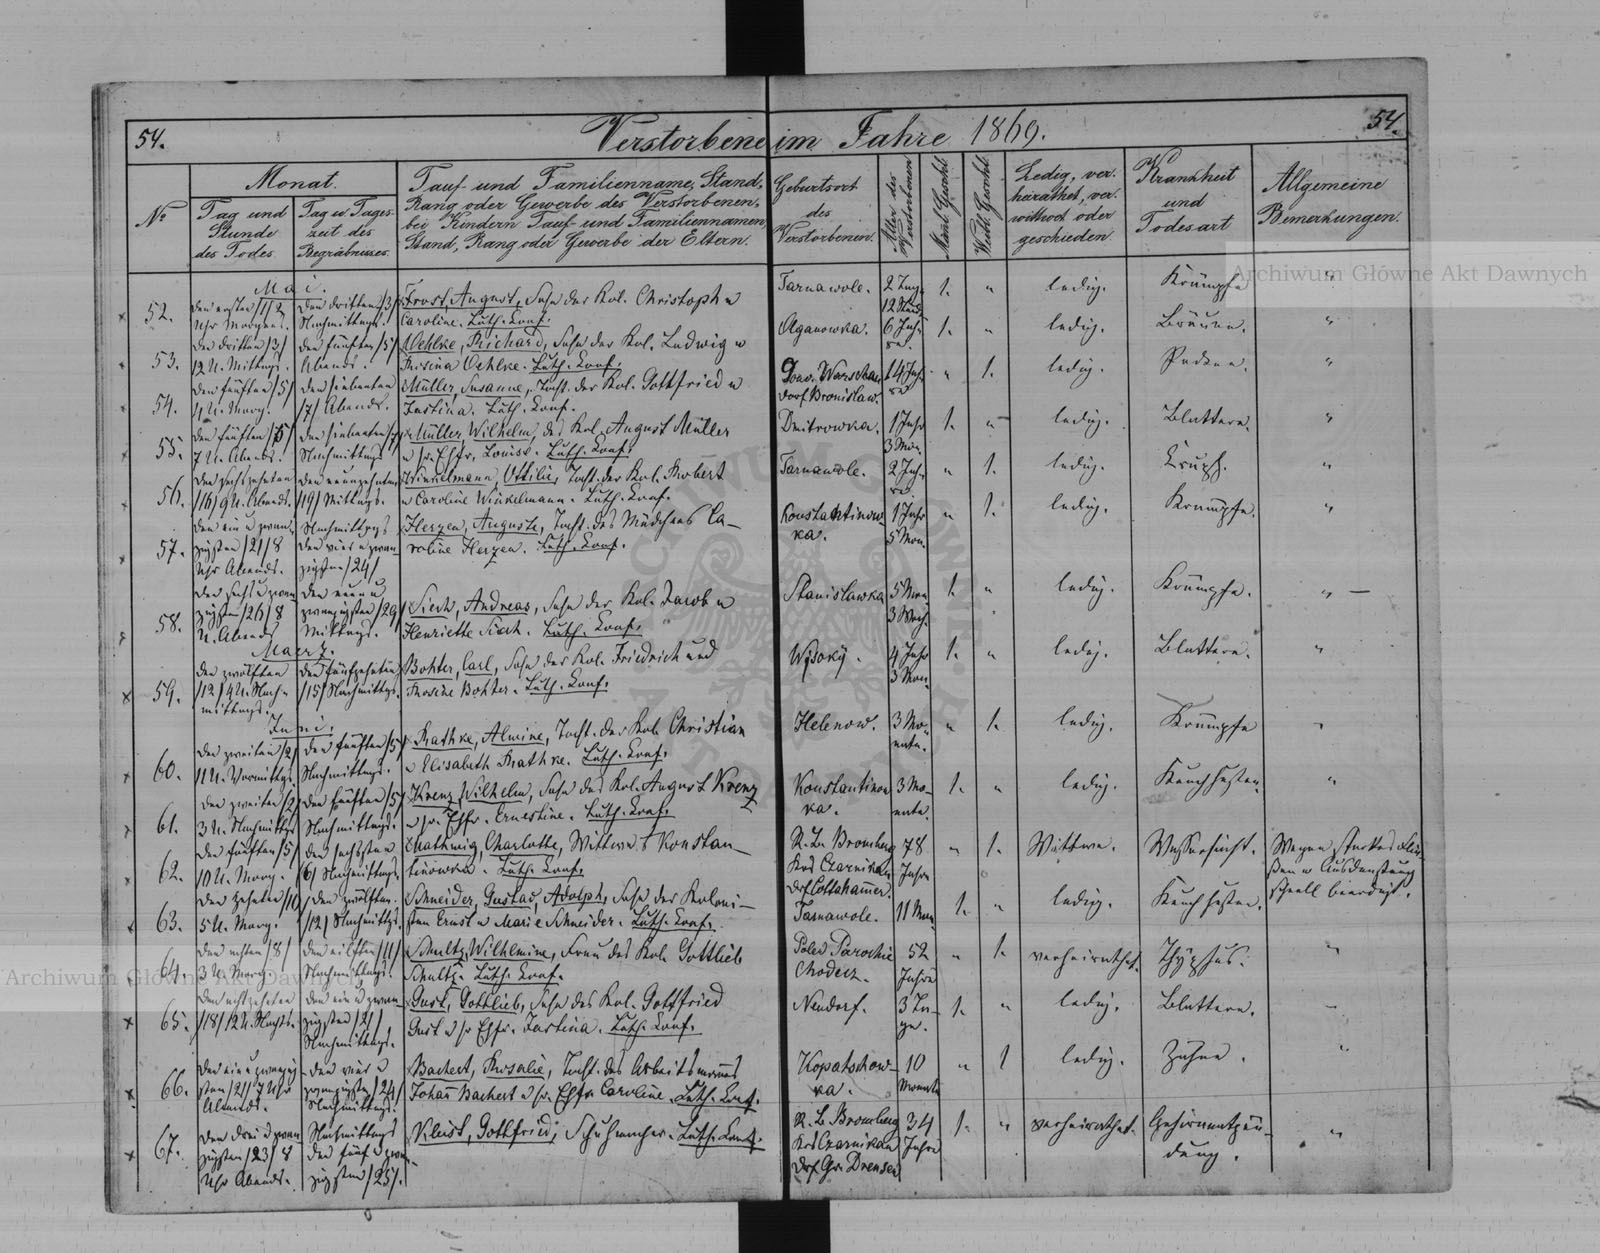 54.
Verstorbene im Jahre 1869.
54.
Archiwum Główne Akt Dawnych
№
Monat.
Tag und Stunde des Todes.
Tag u. Tageszeit des Begräbnisses.
Tauf- und Familienname, Stand,
Rang oder Gewerbe des Verstorbenen,
bei Kindern Tauf- und Familiennamen,
Stand, Rang oder Gewerbe der Eltern.
Geburtsort
des
Verstorbenen.
Alter des Verstorbenen
Mänl. Geschlt.
Weibl. Geschlt.
Ledig, ver-
heirathet, ver-
wittwet oder
geschieden.
Krankheit
und
Todesart
Allgemeine
Bemerkungen.
Mai.
52. Den ersten /1/ 2 Uhr Morgens. Den dritten /3/ Nachmittags. Frost, August, Sohn des Kol. Christoph u
Caroline. Luth. Conf. Tarnawole. 2 Tage 1. " ledig. Krämpfe "
53. Den dritten /3/ 12 U. Mittags. Den fünften /5/ Abends. Oehlke, Richard, Sohn des Kol. Ludwig u
Rosina Oehlke. Luth. Conf. Aganowka. 6 Jahre. 1. " ledig. Bräune. "
54. Den fünften /5/ 4 U. Morg. Den siebenten /7/ Abends. Müller, Susanne, Tocht. des Kol. Gottfried u
Justina. Luth. Conf. Gouv. Warschau Dorf Bronislaw. 14 Jahre " 1. ledig. "
55. Den fünften /5/ 7 U. Abends. Den siebenten /7/ Nachmittags Müller, Wilhelm, des Kol. August Müller
u sr. Ehfr. Louise. Luth. Conf. Dmitrowka. 1 Jahr 3 Mon. 1. " ledig. Blattern. "
56. Den sechszehnten /16/ 9 U. Abends. Den neunzehnten /19/ Mittags. Winkelmann, Ottilie, Tocht. des Kol. Robert
u Caroline Winkelmann. Luth. Conf. Tarnawole. 2 Jahre " 1. ledig. Krupf. "
57. Den ein u zwanzigsten /21/ 8 Uhr Abends. Nachmittags den vier u zwanzigsten /24/ Herzen, Auguste, Tocht. des Mädchens Ca-
roline Herzen. Luth. Conf. Konstantinowka. 1 Jahr 5 Mon. " 1. ledig. Krämpfe. "
58. Den sechs u zwanzigsten /26/ 8 U. Abends Den neun u zwanzigsten /29/ Mittags. Andreas, Sohn des Kol. Jacob u
Henriette Luth. Conf. Stanislawka 5 Mon. 3 Woch. 1. " ledig. Krämpfe. "
Maerz.
59. Den zwölften /12/ 4 U. Nachmittags. Den fünfzehnten /15/ Nachmittags. Bohter, Carl, Sohn des Kol. Friedrich und
Rosine Bohter. Luth. Conf. Wysoky. 4 Jahr 3 Mon. 1. " ledig. Blattern. "
Juni.
60. Den zweiten /2/ 11 U. Vormittgs. Den fünften /5/ Nachmittags. Rathke, Alwine, Tocht. des Kol. Christian
u Elisabeth Rathke. Luth. Conf. Helenow. 3 Monate. " 1. ledig. Krämpfe "
61. Den zweiten /2/ 3 U. Nachmittgs Den fünften /5/ Nachmittags. Krenz, Wilhelm, Sohn des Kol. August Krenz
u sr. Ehfr. Ernestine. Luth. Conf. Konstantinowka. 3 Monate. 1. " ledig. Keuchhusten. "
62. Den fünften /5/ 10 U. Morg. Den sechsten /6/ Nachmittags. Charlotte, Wittwe. Konstan-
tinowka. Luth. Conf. R. Bz. Bromberg Krs Czarnikau Drf. 78 Jahre " 1. Wittwe. Wassersucht. Wegen starkes
u Ausdunstung
schnell beerdigt.
63. Den zehnten /10/ 5 U. Morg. Den zwölften /12/ Nachmittgs. Schneider, Gustav Adolph, Sohn des Koloni-
sten Ernst u Marie Schneider. Luth. Conf. Tarnawole. 11 Mon. 1. " ledig. Keuchhusten.
64. Den achten /8/ 3 U. Morg. Den eilften /11/ Nachmittags. Schultz, Wilhelmine, Frau des Kol. Gottlieb
Schultz. Luth. Conf. Polen Parochie Chodecz. 52 Jahre " 1. verheirathet. Thyphus. "
65. Den achtzehnten /18/ 12 U. Nachts. Den ein u zwanzigsten /21/ Nachmittags. Gust, Gottlieb, Sohn des Kol. Gottfried
Gust u sr Ehfr. Justina. Luth. Conf. Neudorf. 3 Tage. 1. " ledig. Blattern. "
66. Den ein u zwanzigsten /21/ 7 Uhr Abends. Den vier u zwanzigsten /24/ Nachmittags. Bachert, Rosalie, Tocht. des Arbeitsmanns
Johann Bachert u sr. Ehfr. Caroline. Luth. Conf. Kopatschowka. 10 Monate " 1 ledig. Zähne. "
67. Den drei u zwanzigsten /23/ 8 Uhr Abends. Nachmittags den fünf u zwanzigsten /25/. Kleist, Gottfried, Schuhmacher. Luth. Conf. R. Bz Bromberg Krs Czarnikau Drf. Gr. Drensen 34 Jahre 1. " verheirathet. Gehirnentzün-
dung. "
Archiwum Główne Akt Dawnych